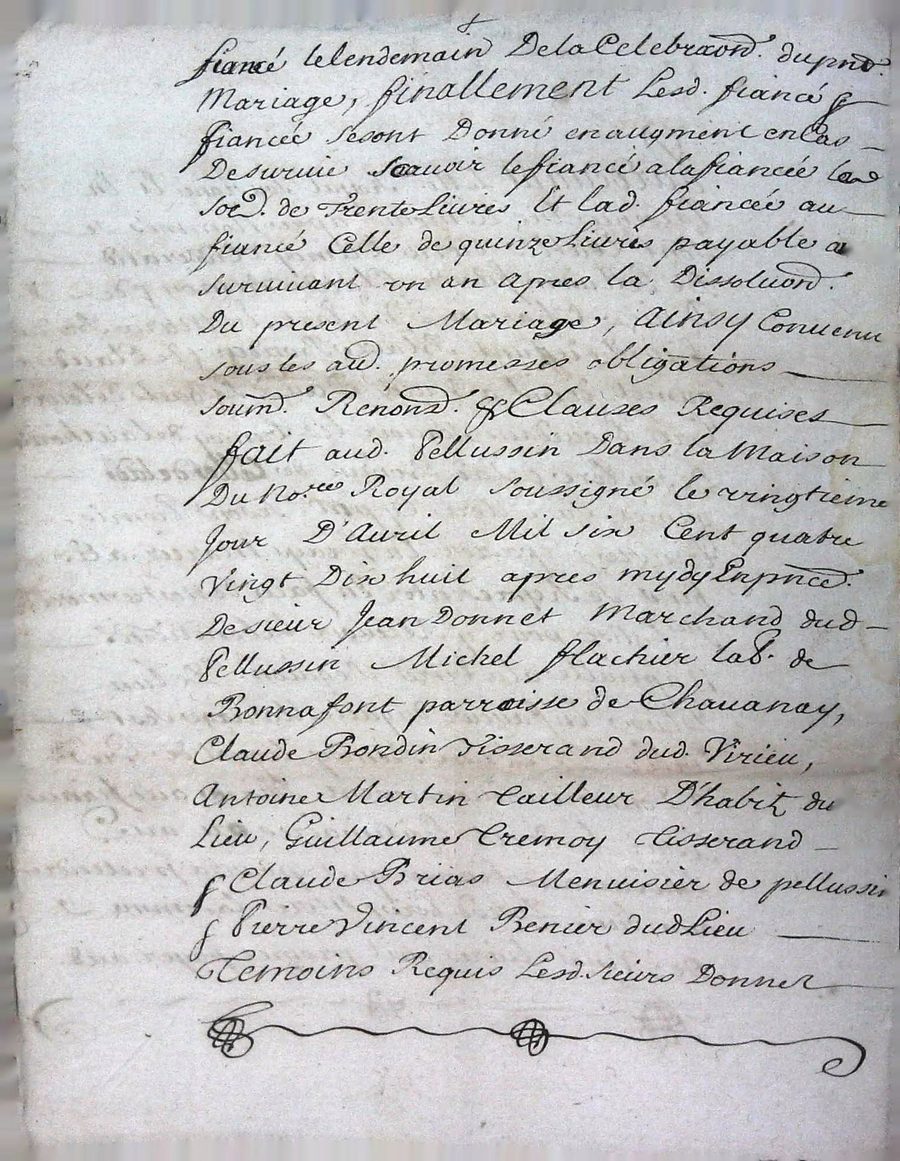 fiancé lelendemain Dela Celebraõn. dupnt.
Mariage, finallement Lesd. fiancé &
fiancée sesont Donné en augment en Cas
De suruie scauoir lefiancé alafiancée la
soē. de Trente Liures Et lad. fiancée au
fiancé Celle de quinze Liures payable a
suruiuant un an apres la Dissoluōn.
Du present Mariage, Ainsy Conuenu
sous les aud. promesses obligations
soum. Renōn. & Clauses Requises
fait aud. Pellussin Dans la Maison
Du No.re Royal soussigné le vingtieme
Jour D'Auril Mil six Cent quatre
Vingt Dix huit apres mydy Enpnce.
De sieur Jean Donnet Marchand dud
Pellussin Michel flachier lab. de
Bonnafont parroisse de Chauanay,
Claude Bondin Tisserand dud. Virieu,
Antoine Martin Tailleur D'habitz du
Lieu, Guillaume Tremoy Tisserand
& Claude Brias Menuisier de pellussin
& Pierre Vincent Benier dud Lieu
Temoins Requis Lesd. sieurs Donnet